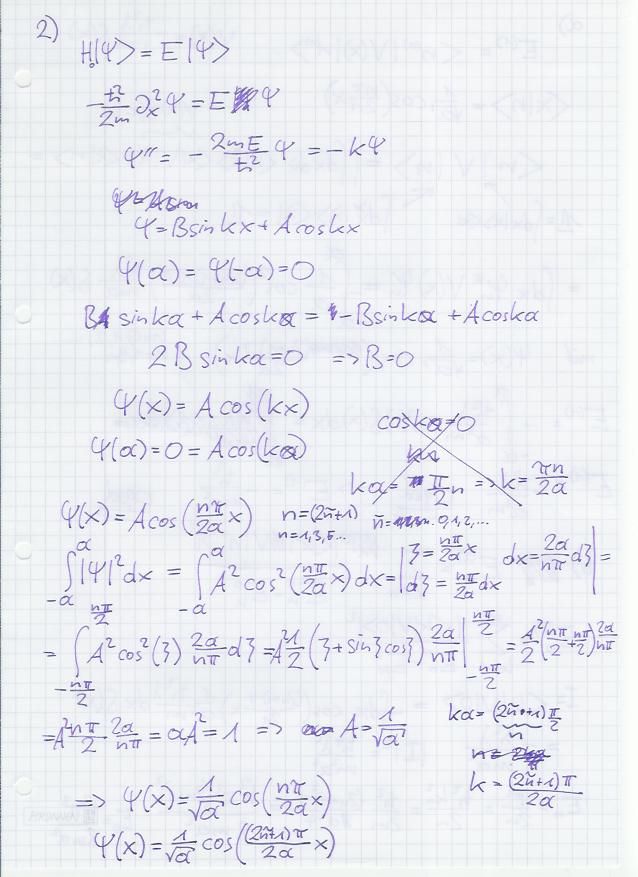 2)
H₀|Ψ> = E|Ψ>
-ħ²/2m ∂ₓ² Ψ = E Ψ
Ψ'' = - 2mE/ħ² Ψ = -kΨ
Ψ = B sin kx + A cos kx
Ψ(a) = Ψ(-a) = 0
B sin ka + A cos ka = -B sin ka + A cos ka
2B sin ka = 0 => B = 0
Ψ(x) = A cos(kx) cos ka = 0
Ψ(a) = 0 = A cos(ka)
ka = π/2 n => k = πn/2a
Ψ(x) = A cos(nπ/2a x) n = (2ñ+1) ñ = 0,1,2,...
n = 1,3,5...
∫_{-a}^{a} |Ψ|² dx = ∫_{-a}^{a} A² cos²(nπ/2a x) dx = | ξ = nπ/2a x dξ = nπ/2a dx dx = 2a/nπ dξ | =
= ∫_{-nπ/2}^{nπ/2} A² cos²(ξ) 2a/nπ dξ = A² 1/2 (ξ + sin ξ cos ξ) 2a/nπ |_{-nπ/2}^{nπ/2} = A²/2 (nπ/2 + nπ/2) 2a/nπ
= A² nπ/2 2a/nπ = aA² = 1 => A = 1/√a
ka = (2ñ+1) π/2
n
k = (2ñ+1)π/2a
=> Ψ(x) = 1/√a cos(nπ/2a x)
Ψ(x) = 1/√a cos((2ñ+1)π/2a x)